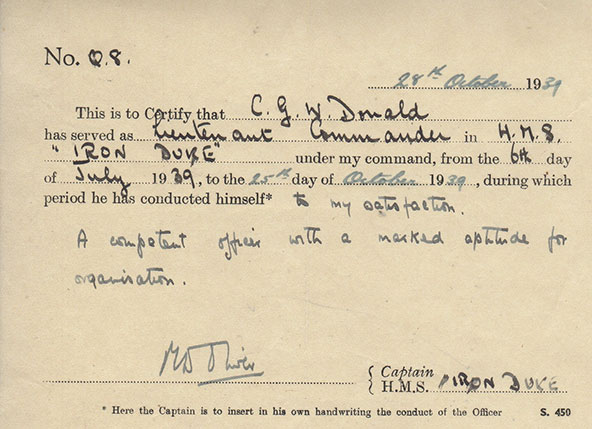 No. Q.8.
28th October 1939
This is to Certify that C. G. W. Donald
has served as Lieutenant Commander in H.M.S.
"IRON DUKE" under my command, from the 6th day
of July 1939, to the 25th day of October 1939, during which
period he has conducted himself* to my satisfaction.
A competent officer with a marked aptitude for
organisation.
Captain
H.M.S. IRON DUKE
* Here the Captain is to insert in his own handwriting the conduct of the Officer S. 450